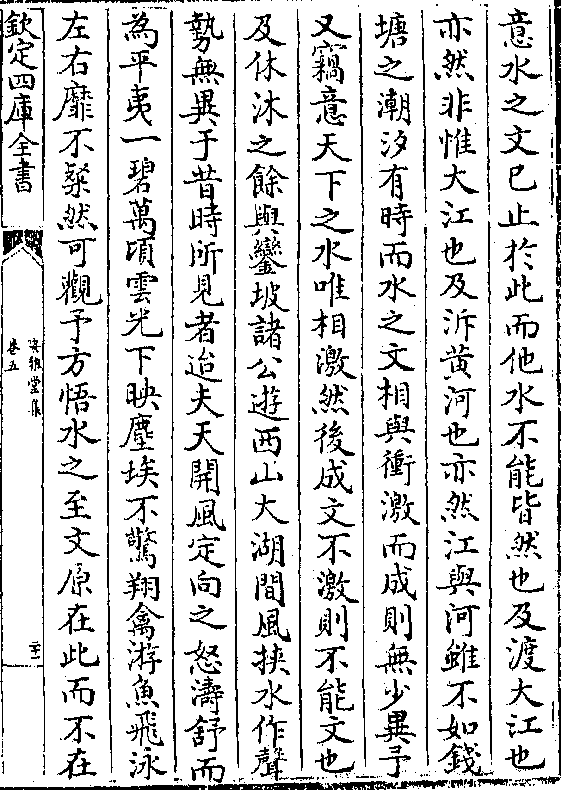 意水之文已止於此而他水不能皆然也及渡大江也
亦然非惟大江也及泝黄河也亦然江與河雖不如錢
塘之潮汐有時而水之文相與衝激而成則無少異予
又竊意天下之水唯相激然後成文不激則不能文也
及休沐之餘與鑾坡諸公遊西山大湖間風挾水作聲
勢無異于昔時所見者迨夫天開風定向之怒濤舒而
為平夷一碧萬頃雲光下映塵埃不驚翔禽游魚飛泳
左右靡不粲然可觀予方悟水之至文原在此而不在
欽定四庫全書
安雅堂集
卷五